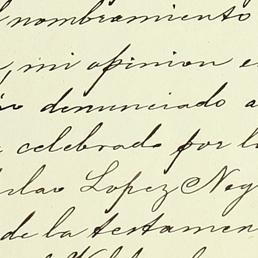 nombramiento
, mi opinion e
denunciado a
celebrado por l
Lopez Neg
de la testamen